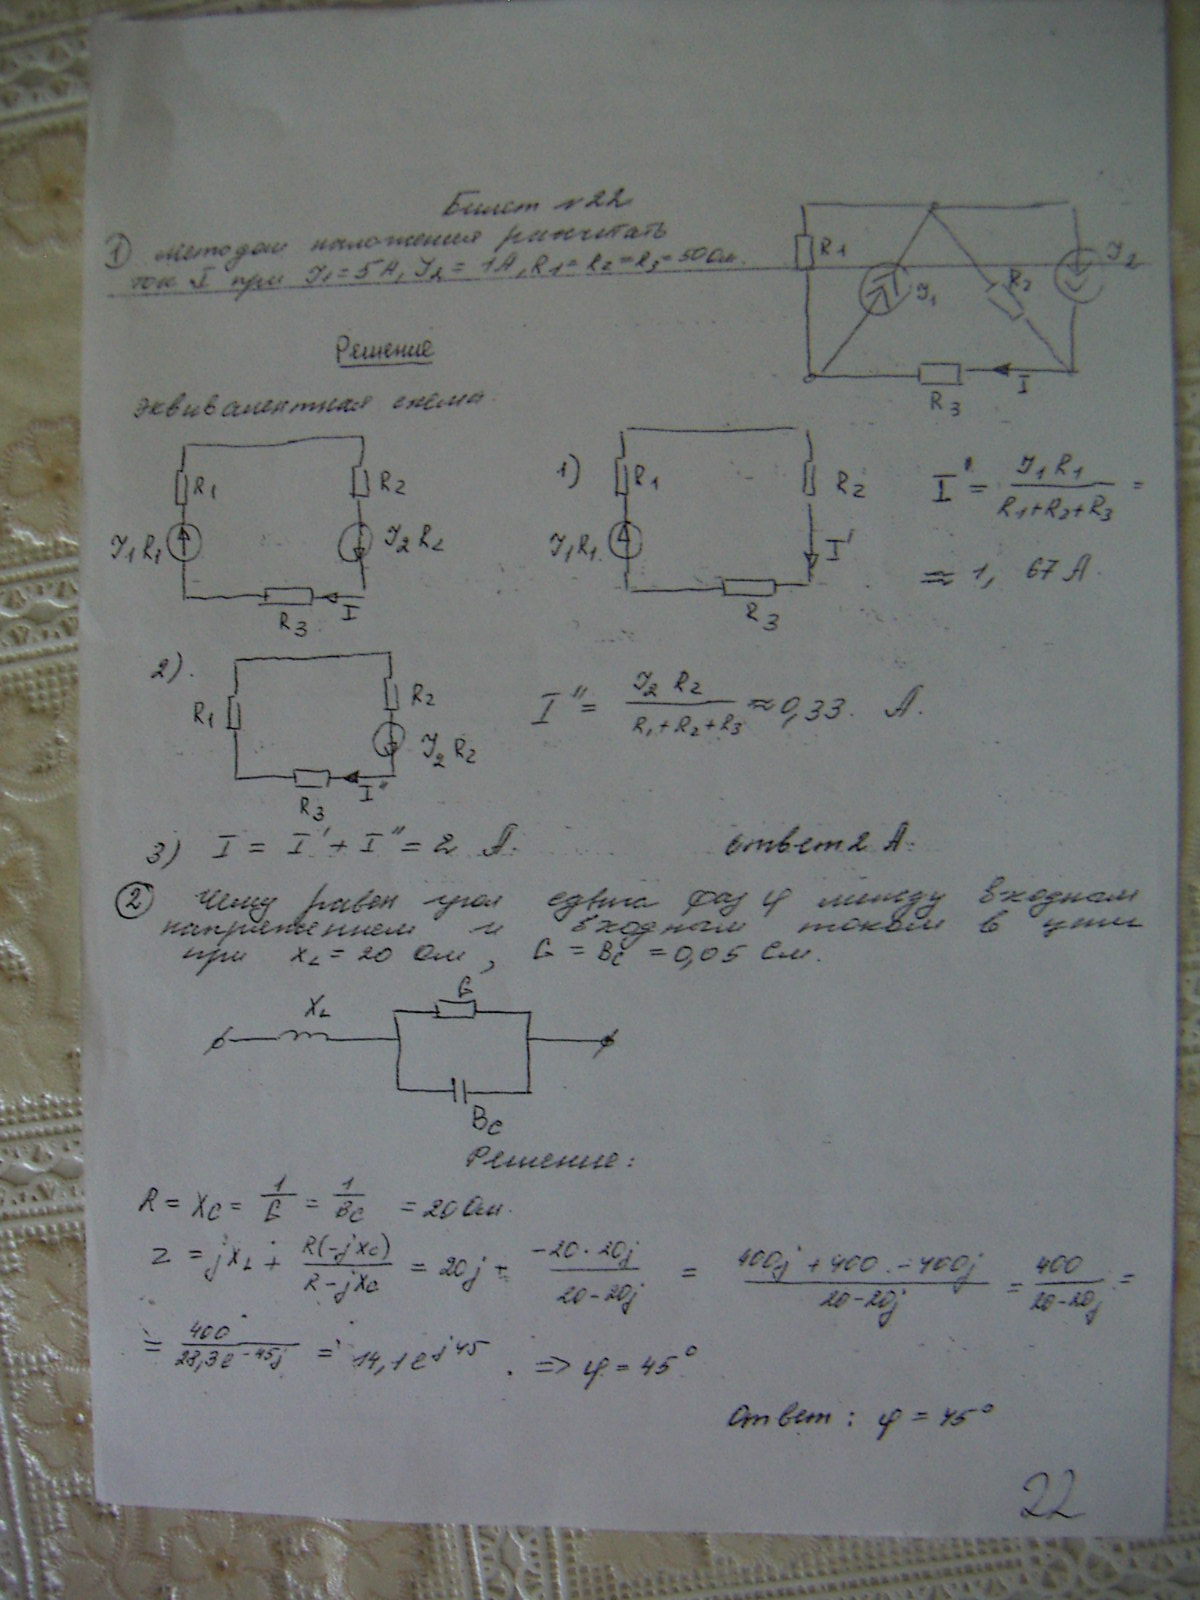 Билет №22
① Методом наложения расчитать
ток I при J1 = 5А, J2 = 1А, R1 = R2 = R3 = 50 Ом.
R1
J1
R2
J2
R3
I
Решение
Эквивалентная схема.
R1
R2
J1R1
J2R2
R3
I
1)
R1
R2
J1R1
I'
R3
I' = J1R1 / (R1+R2+R3) =
≈ 1,67 А.
2).
R1
R2
J2R2
I''
R3
I'' = J2R2 / (R1+R2+R3) ≈ 0,33. А.
3) I = I' + I'' = 2 А.
ответ 2 А.
② Чему равен угол сдвига фаз φ между входным
напряжением и входным током в цепи
при XL = 20 Ом, G = BC = 0,05 См.
XL
G
BC
Решение:
R = XC = 1/G = 1/BC = 20 Ом.
Z = jXL + R(-jXC) / (R-jXC) = 20j + (-20·20j) / (20-20j) = (400j + 400 - 400j) / (20-20j) = 400 / (20-20j) =
= 400 / 28,3e^-45j = 14,1e^j45. => φ = 45°
Ответ: φ = 45°
22